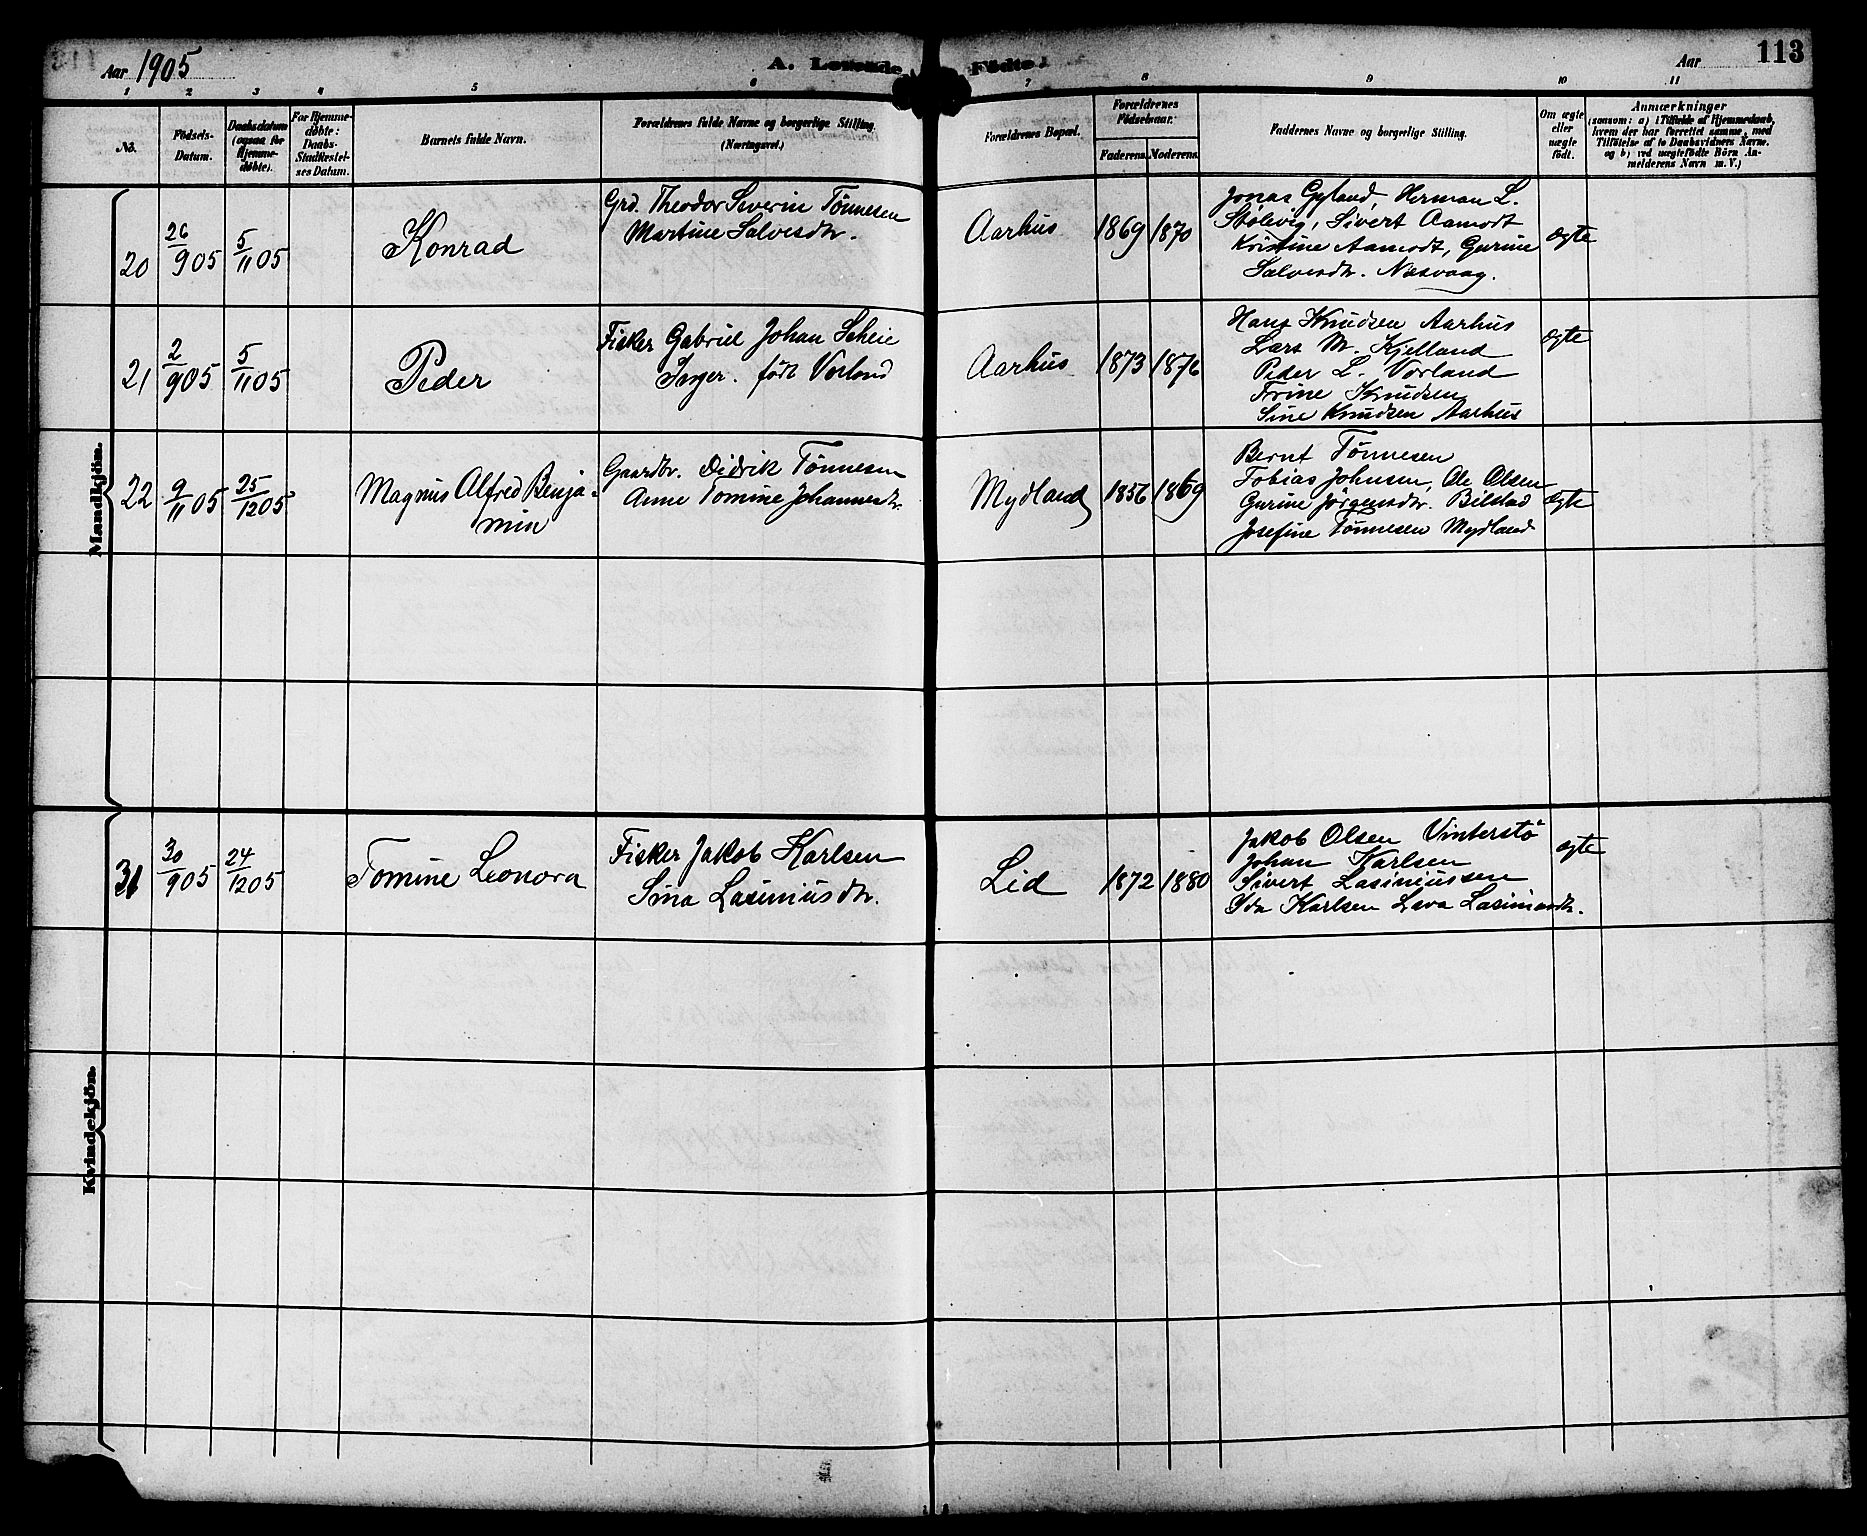 Aar 1905
A. Levende Fødte.
Aar
113
1 2 3 4 5 6 7 8 9 10 11
No.
Fødsels-
Datum.
Daabsdatum
(ogsaa for
Hjemme-
døbte).
For Hjemme-
døbte:
Daabs-
Stadfæstel-
ses Datum.
Barnets fulde Navn.
Forældrenes fulde Navne og borgerlige Stilling.
(Næringsvei.)
Forældrenes Bopæl.
Forældrenes
Fødselsaar:
Faderens.
Moderens.
Faddernes Navne og borgerlige Stilling.
Om ægte
eller
uægte
født.
Anmærkninger
(saasom: a) i Tilfælde af Hjemmedaab,
hvem der har forrettet samme, med
Tilføielse af to Daabsvidners Navne,
og b) ved uægtefødte Børn An-
melderens Navn m. V.)
Mandkjøn.
20
26/9 05
5/11 05
Konrad
Grd. Theodor Severin Tønnesen
Martine Salvesdtr.
Aarhus
1869
1870
Jonas Gyland, Herman L.
Stølevig, Sivert Aamodt
Kristine Aamodt, Gurine
Salvesdtr. Næsvaag.
ægte
21
2/9 05
5/11 05
Peder
Fisker Gabriel Johan Scheie
Inger. født Vorland
Aarhus
1873
1876
Hans Knudsen Aarhus
Lars M. Kjelland
Peder L. Vorland
Trine Knudsen
Sine Knudsen Aarhus
ægte
22
9/11 05
25/12 05
Magnus Alfred Benja-
min
Gaardbr. Didrik Tønnesen
Anne Tomine Johannesdtr.
Mydland
1856
1869
Bernt Tønnesen
Tobias Johnsen, Ole Olsen
Gurine Jørgensdtr. Bilstad
Josefine Tønnesen Mydland
ægte
Kvindekjøn.
31
30/9 05
24/12 05
Tomine Leonora
Fisker Jakob Karlsen
Sina Lasiniusdtr.
Lid
1872
1880
Jakob Olsen Vinterstø
Johan Karlsen
Sivert Lasiniussen
Ida Karlsen Lava Lasiniusdtr.
ægte